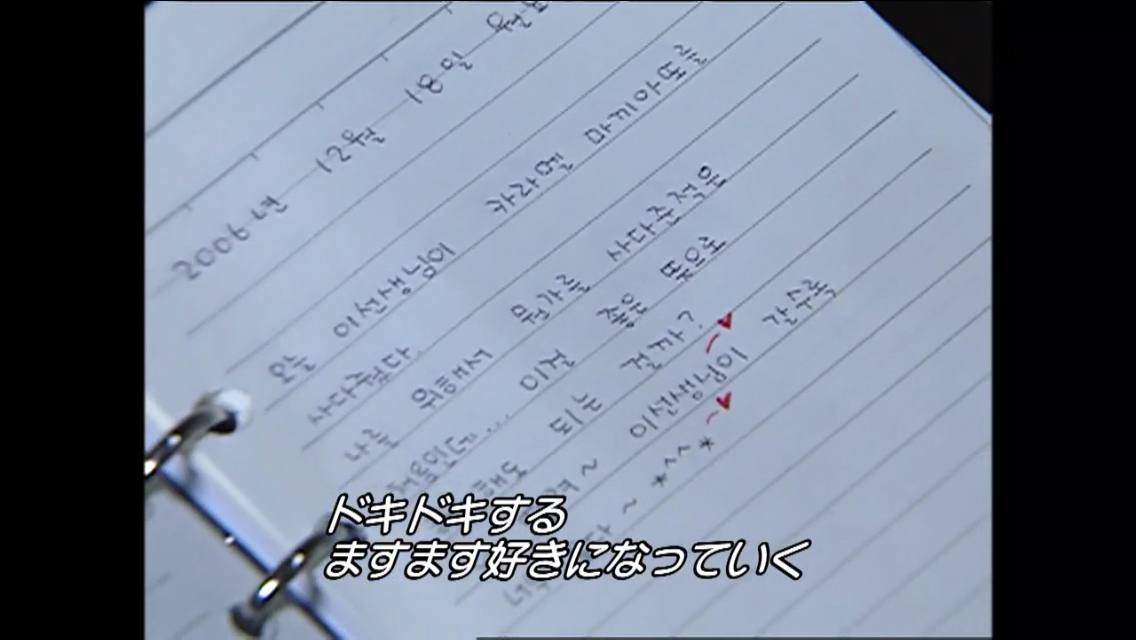 2006년 12월 18일
오늘 이선생님이 카라멜 마끼아또를
사다줬다.
나를 위해서 뭔가를 사다준적은
이걸 좋은 뜻으로
해도 되는 걸까?
~ 이선생님이 갈수록
~ *^^*
ドキドキする
ますます好きになっていく